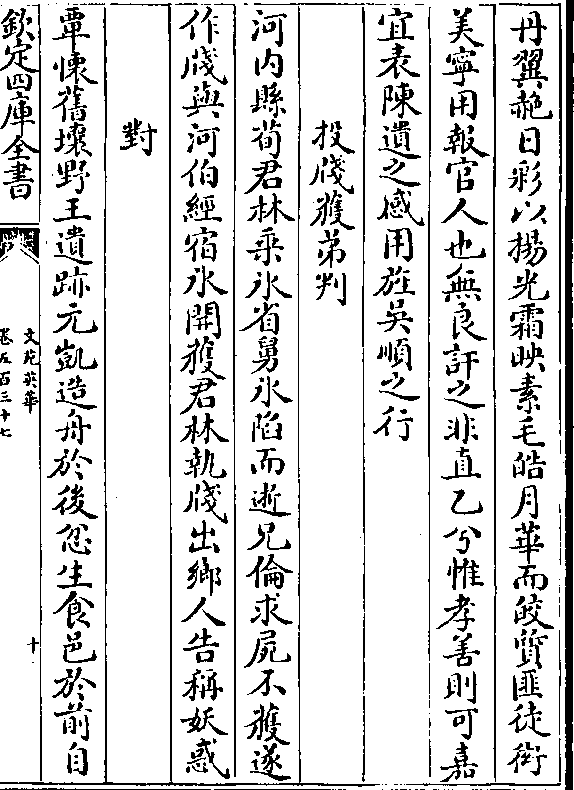 丹翼赩日彩以揚光霜映素毛皓月華而皎質匪徒衒
美寧用報官人也無良訐之非直乙兮惟孝善則可嘉
宜表陳遺之感用旌吳順之行
投牋獲弟判
河内縣荀君林乘氷省舅氷陷而逝兄倫求屍不獲遂
作牋與河伯經宿氷開獲君林執牋出鄉人告稱妖惑
對
覃懷舊壤野王遺跡元凱造舟於後忿生食邑於前自
欽定四庫全書
文苑英華
卷五百三十七
十